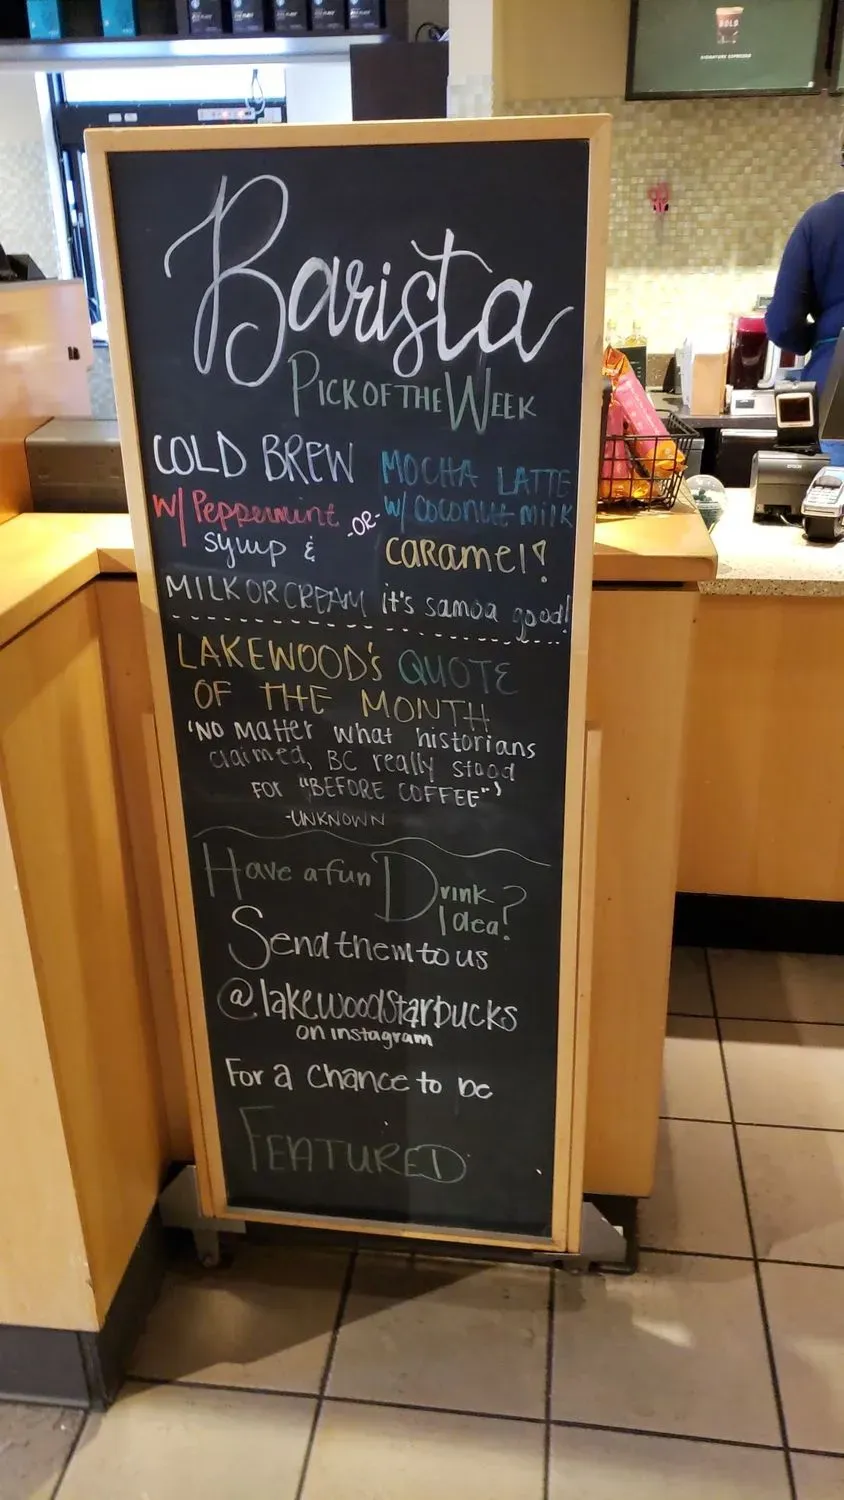 SOLO
SIGNATURE ESPRESSO
Barista
PICK OF THE WEEK
COLD BREW
w/ Peppermint
syrup &
MILK OR CREAM
-OR-
MOCHA LATTE
w/ COCONUT MILK
CARAMEL!
it's samoa good!
LAKEWOOD's QUOTE
OF THE MONTH
'NO MATTER what historians
claimed, BC really stood
FOR "BEFORE COFFEE"'
-UNKNOWN
Have a fun Drink
Idea?
Send them to us
@lakewoodstarbucks
on instagram
For a chance to be
FEATURED
EPSON